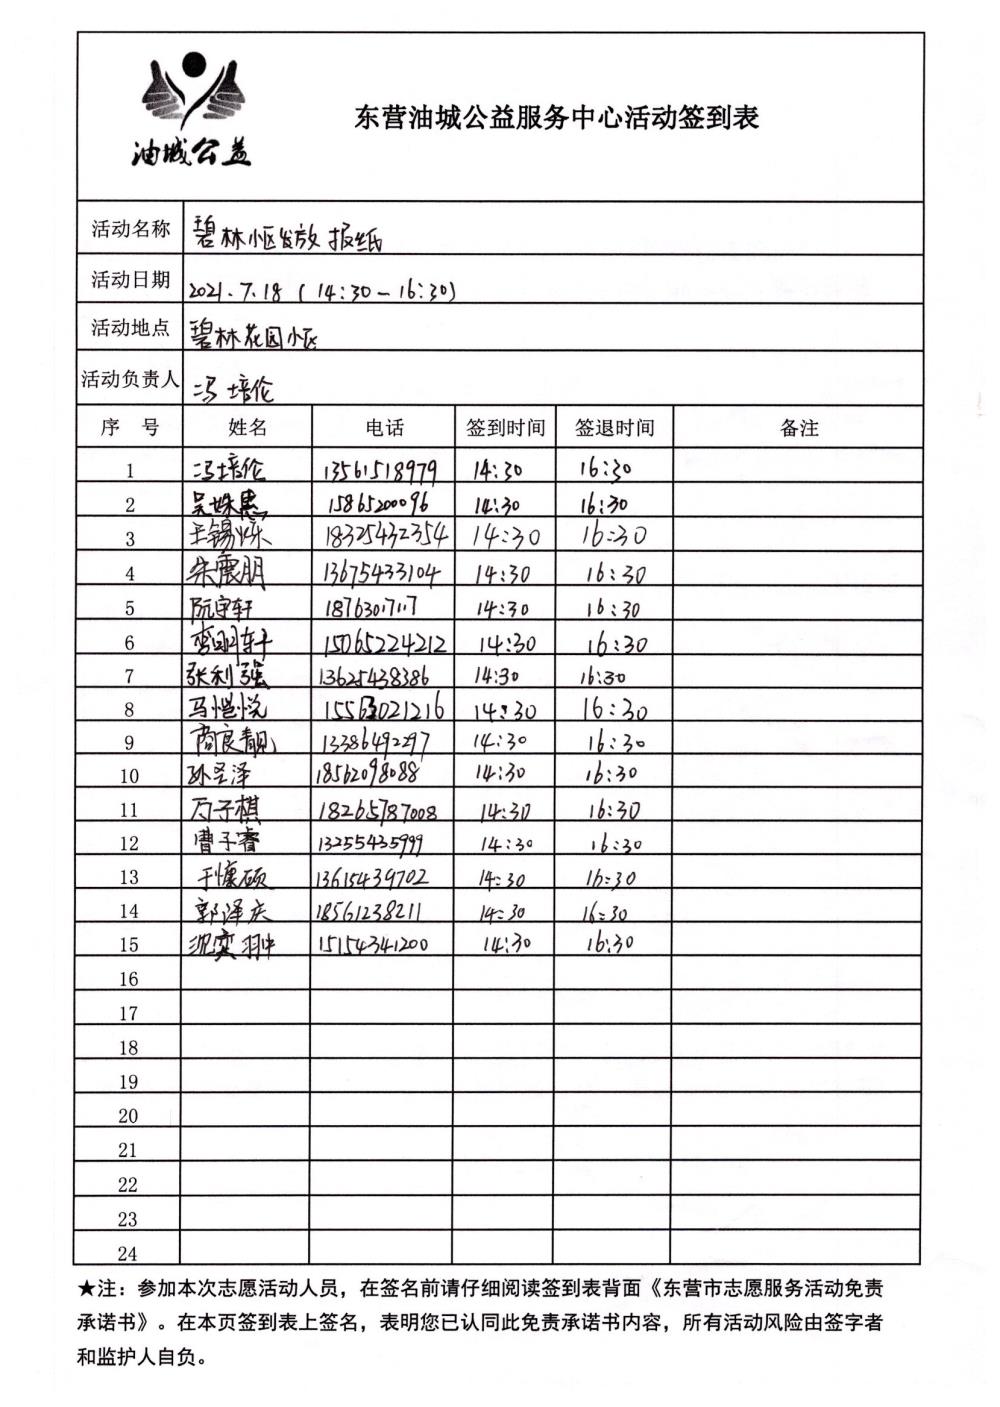 油城公益
东营油城公益服务中心活动签到表
活动名称 碧林小区发放报纸
活动日期 2021.7.18 (14:30-16:30)
活动地点 碧林花园小区
活动负责人 冯培伦
序 号 姓名 电话 签到时间 签退时间 备注
1 冯培伦 13561518979 14:30 16:30
2 吴姝惠 15865200096 14:30 16:30
3 王锡烁 18325432354 14:30 16:30
4 朱震朋 13675433104 14:30 16:30
5 阮宇轩 18763017117 14:30 16:30
6 栾明轩 15065224212 14:30 16:30
7 张利强 13625438386 14:30 16:30
8 马恺悦 15563021216 14:30 16:30
9 商良靓 13386492297 14:30 16:30
10 孙圣泽 18562098088 14:30 16:30
11 万子棋 18265787008 14:30 16:30
12 曹子睿 13255435999 14:30 16:30
13 于慷硕 13615439702 14:30 16:30
14 郭泽庆 18561238211 14:30 16:30
15 沈奕翀 15154341200 14:30 16:30
16
17
18
19
20
21
22
23
24
★注：参加本次志愿活动人员，在签名前请仔细阅读签到表背面《东营市志愿服务活动免责
承诺书》。在本页签到表上签名，表明您已认同此免责承诺书内容，所有活动风险由签字者
和监护人自负。